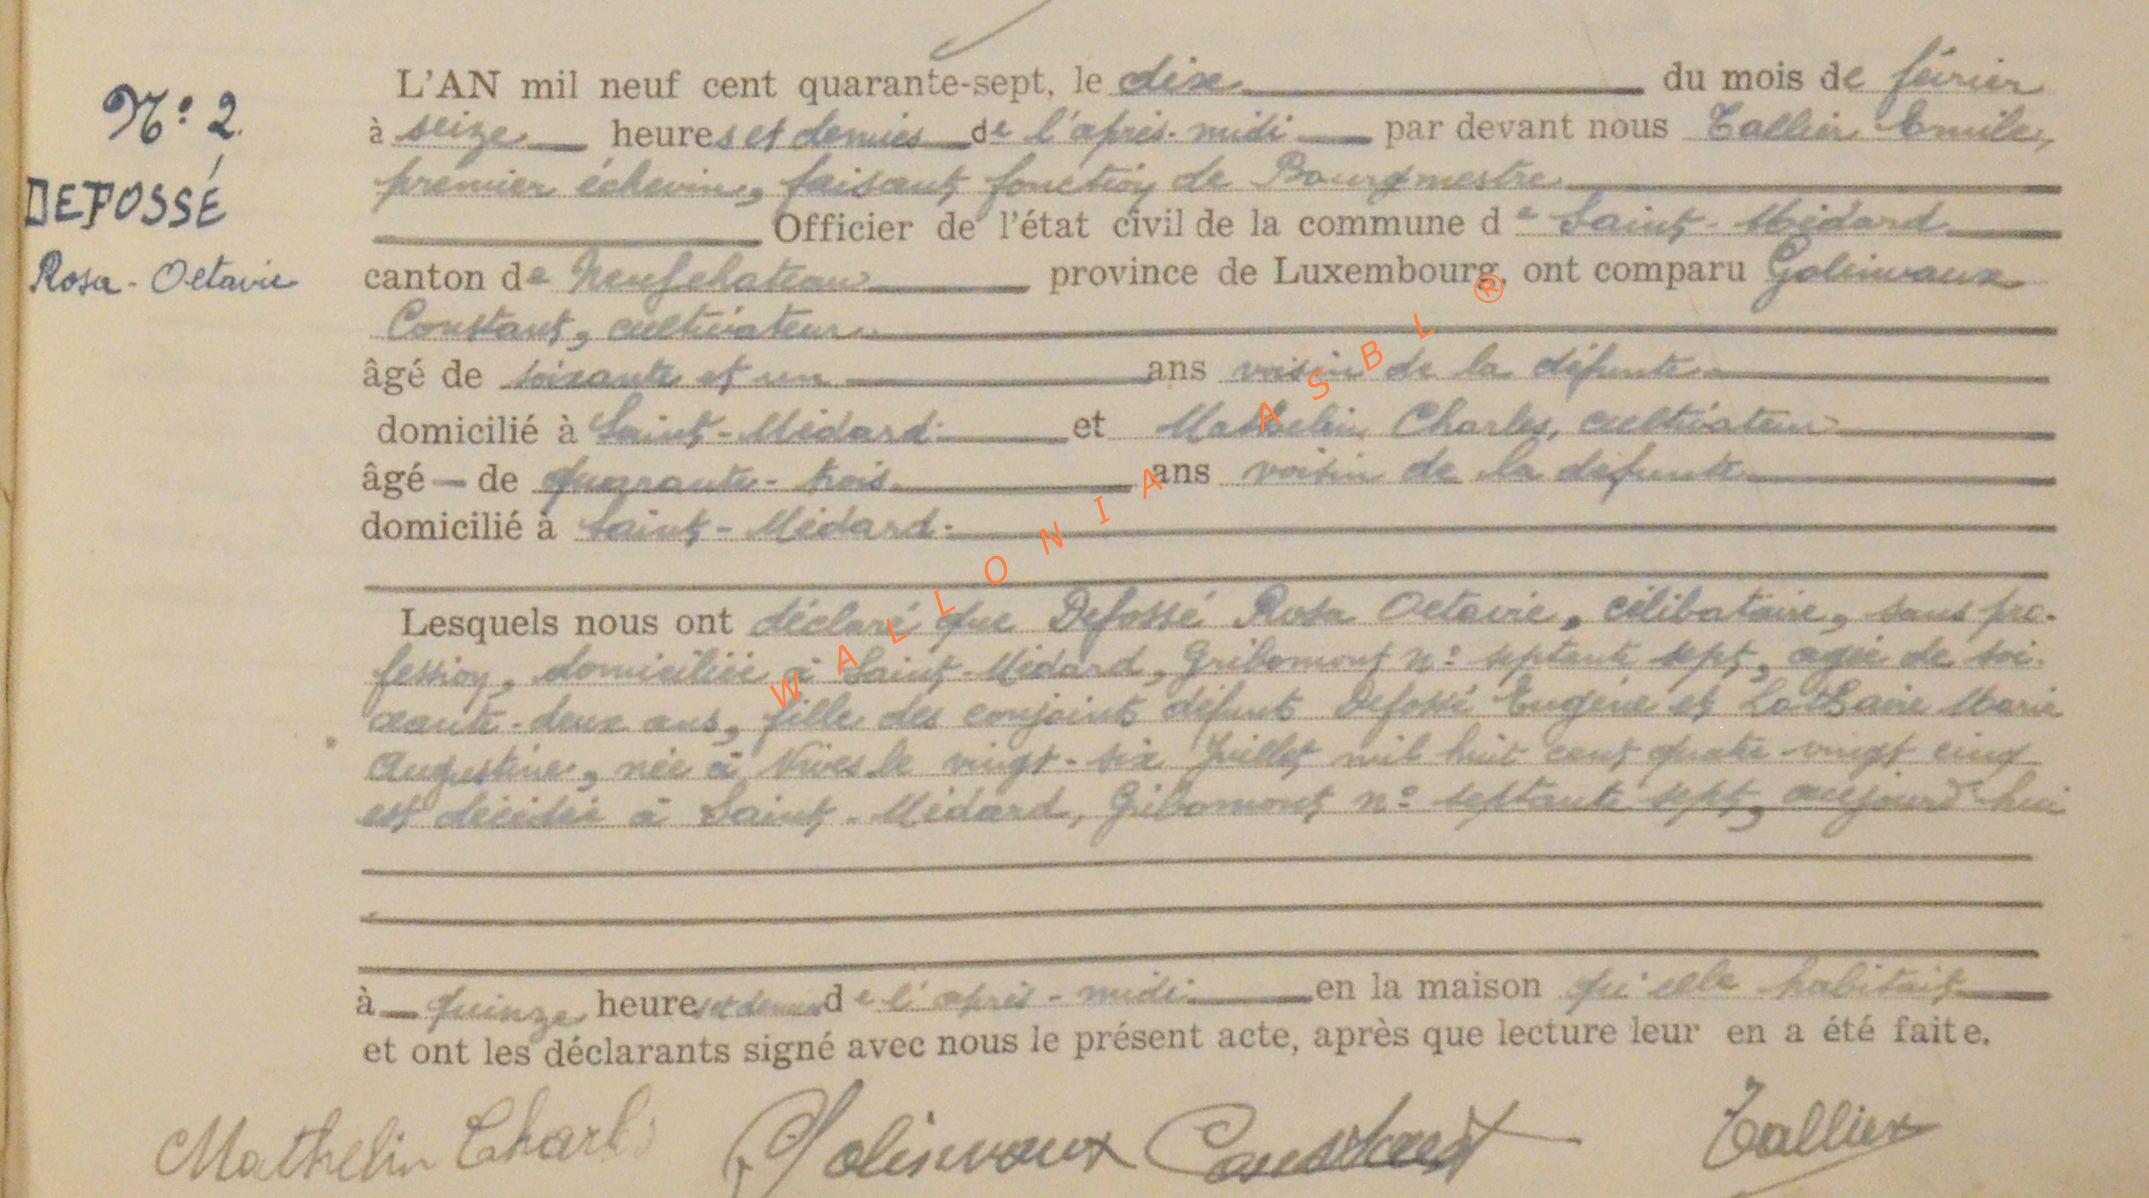 N° 2.
DEFOSSÉ
Rosa-Octavie
L'AN mil neuf cent quarante-sept, le dix du mois de février
à seize heures et demies de l'après-midi par devant nous Tallier Emile,
premier échevin, faisant fonction de Bourgmestre
Officier de l'état civil de la commune de Saint-Médard
canton de Neufchateau province de Luxembourg, ont comparu Golinvaux
Constant, cultivateur
âgé de soixante et un ans voisin de la défunte
domicilié à Saint-Médard et Mathelin Charles, cultivateur
âgé — de quarante-trois ans voisin de la défunte
domicilié à Saint-Médard.
Lesquels nous ont déclaré que Defossé Rosa Octavie, célibataire, sans pro-
fession, domiciliée à Saint-Médard, Gribomont n° septante sept, agée de soi-
xante-deux ans, fille des conjoints défunts Defossé Eugène et Lothaire Marie
Augustine, née à Nives le vingt-six Juillet mil huit cent quatre-vingt cinq
est décédée à Saint-Médard, Gribomont n° septante sept, aujourd'hui
à quinze heures et demies de l'après-midi en la maison qu'elle habitait
et ont les déclarants signé avec nous le présent acte, après que lecture leur en a été faite.
Mathelin Charles Golinvaux Constant Tallier
WALLONIA ASBL ®